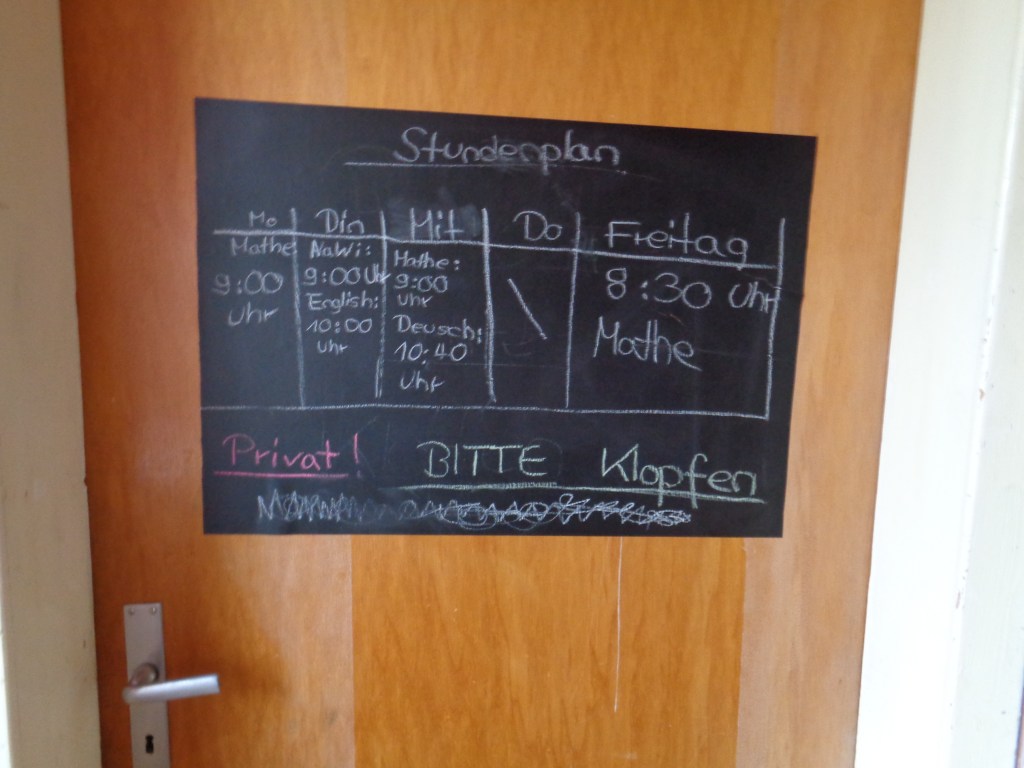 Stundenplan
Mo Din Mit Do Freitag
Mathe
9:00
Uhr
NaWi:
9:00 Uhr
English:
10:00
Uhr
Mathe:
9:00
Uhr
Deusch:
10:40
Uhr
8:30 Uhr
Mathe
Privat! BITTE Klopfen